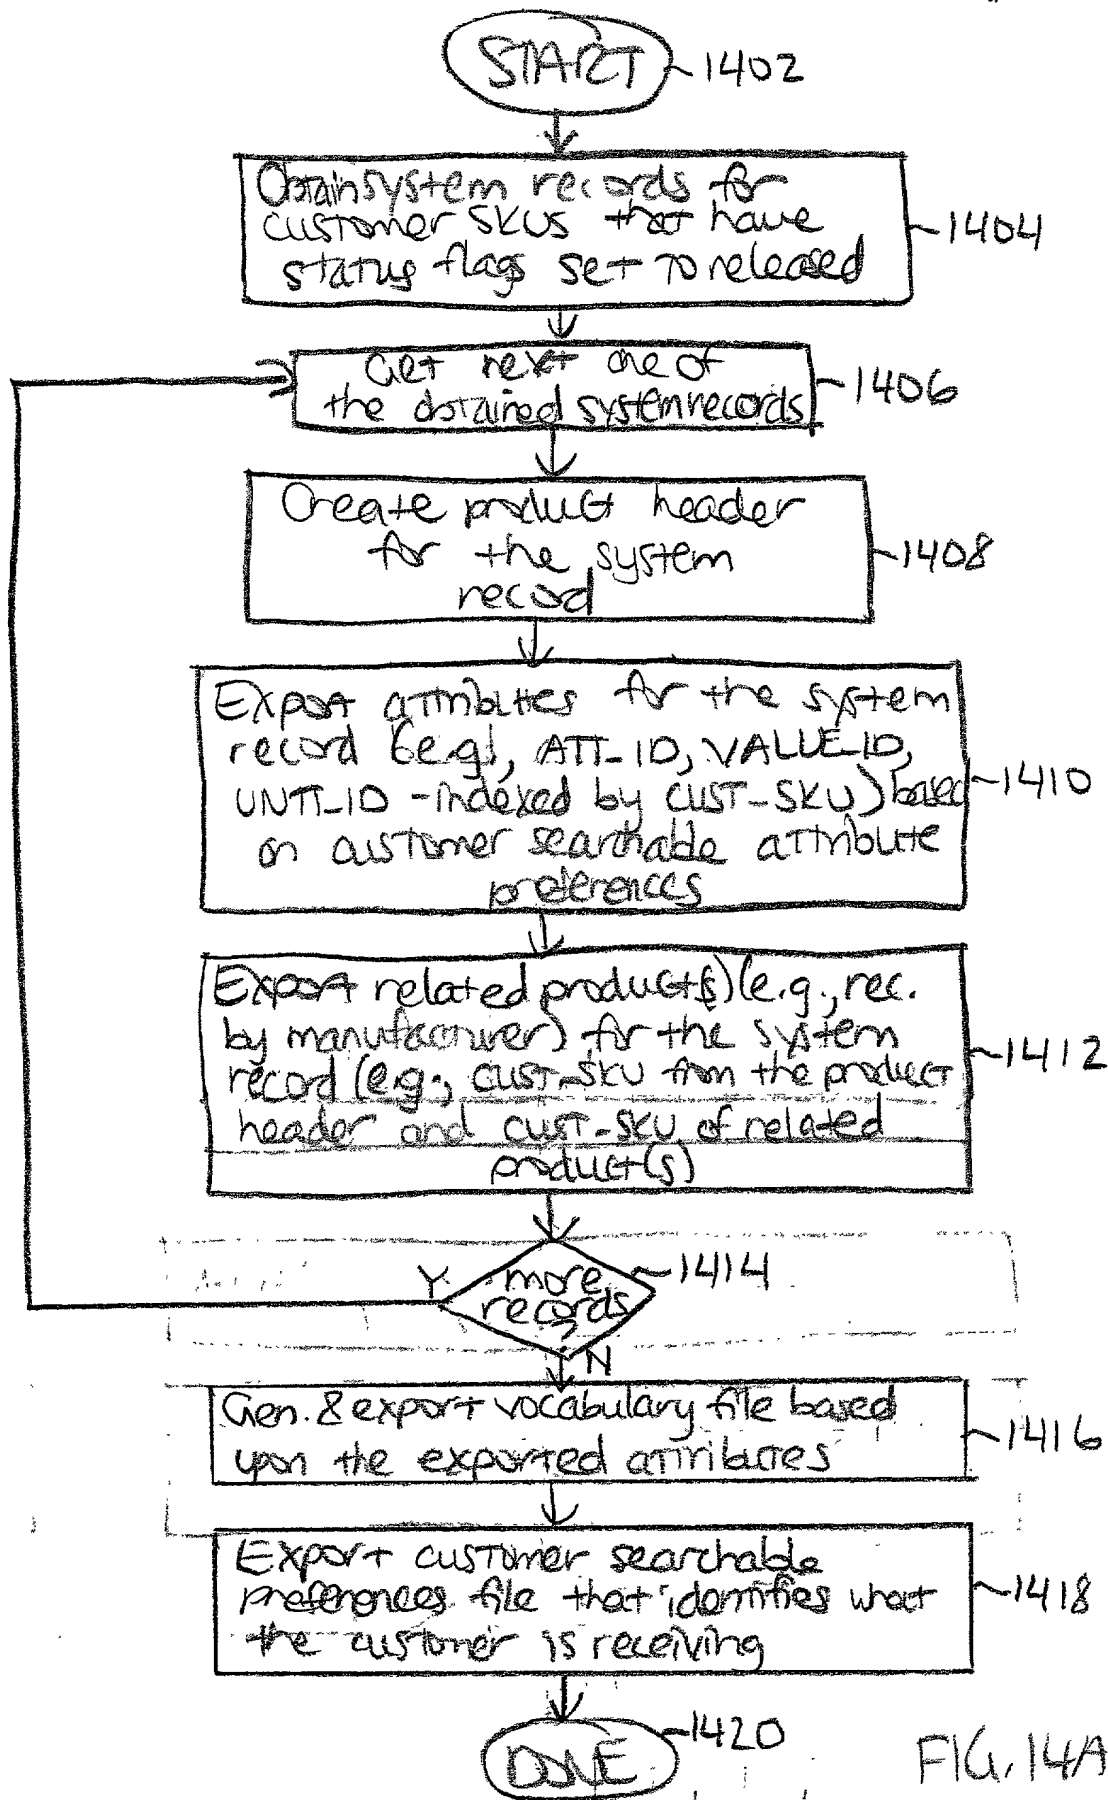 START 1402
Obtain system records for
customer SKUs that have
status flags set to released
1404
Get next one of
the obtained system records
1406
Create product header
for the system
record
1408
Export attributes for the system
record (e.g., ATT_ID, VALUE_ID,
UNIT_ID - indexed by CUST_SKU) based
on customer searchable attribute
preferences
1410
Export related product(s) (e.g., rec.
by manufacturer) for the system
record (e.g., CUST_SKU from the product
header and CUST_SKU of related
product(s)
1412
more
records
?
1414
Y
N
Gen. & export vocabulary file based
upon the exported attributes
1416
Export customer searchable
preferences file that identifies what
the customer is receiving
1418
DONE 1420
FIG. 14A